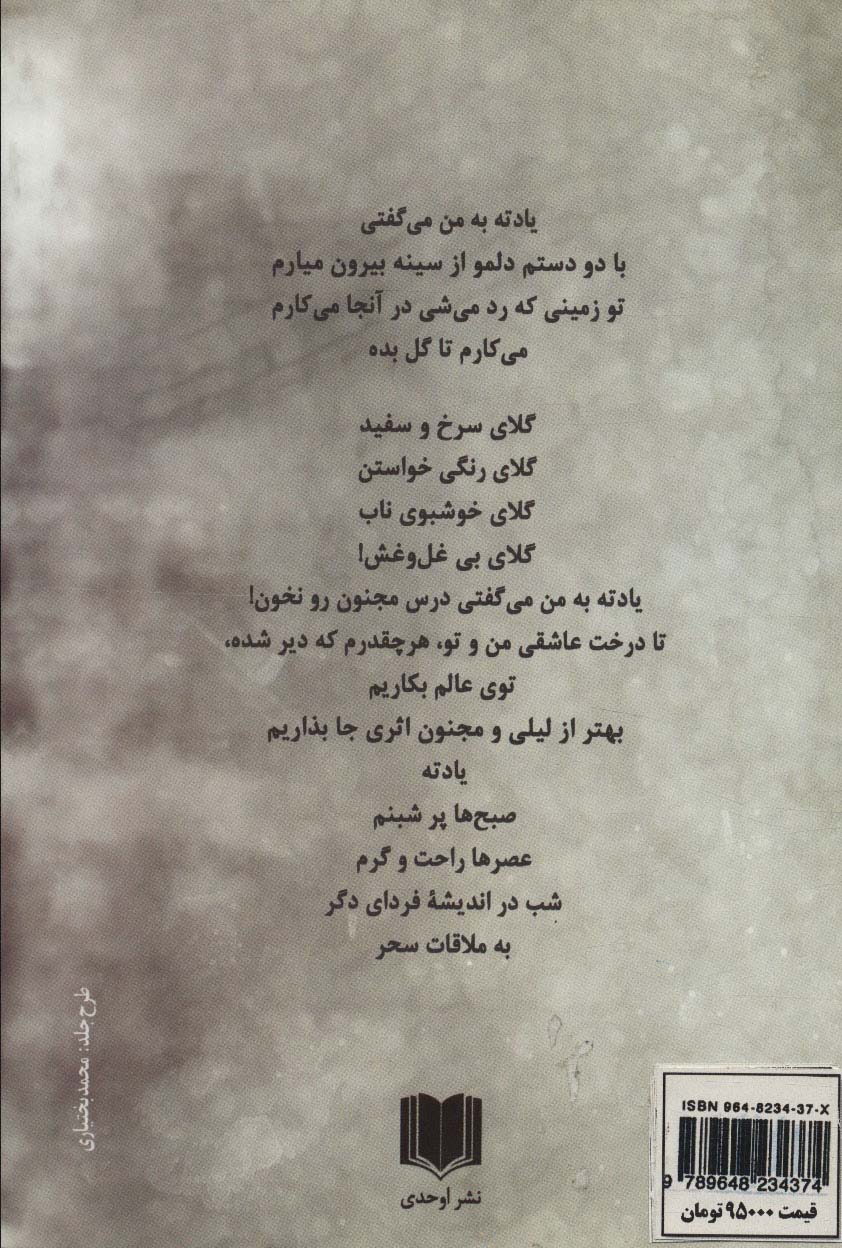 یادته به من می‌گفتی
با دو دستم دلمو از سینه بیرون میارم
تو زمینی که رد می‌شی در آنجا می‌کارم
می‌کارم تا گل بده
گلای سرخ و سفید
گلای رنگی خواستن
گلای خوشبوی ناب
گلای بی غل‌وغش!
یادته به من می‌گفتی درس مجنون رو نخون!
تا درخت عاشقی من و تو، هرچقدرم که دیر شده،
توی عالم بکاریم
بهتر از لیلی و مجنون اثری جا بذاریم
یادته
صبح‌ها پر شبنم
عصرها راحت و گرم
شب در اندیشهٔ فردای دگر
به ملاقات سحر
طرح جلد: محمد بختیاری
نشر اوحدی
ISBN 964-8234-37-X
9 789648 234374
قیمت ۹۵۰۰۰ تومان